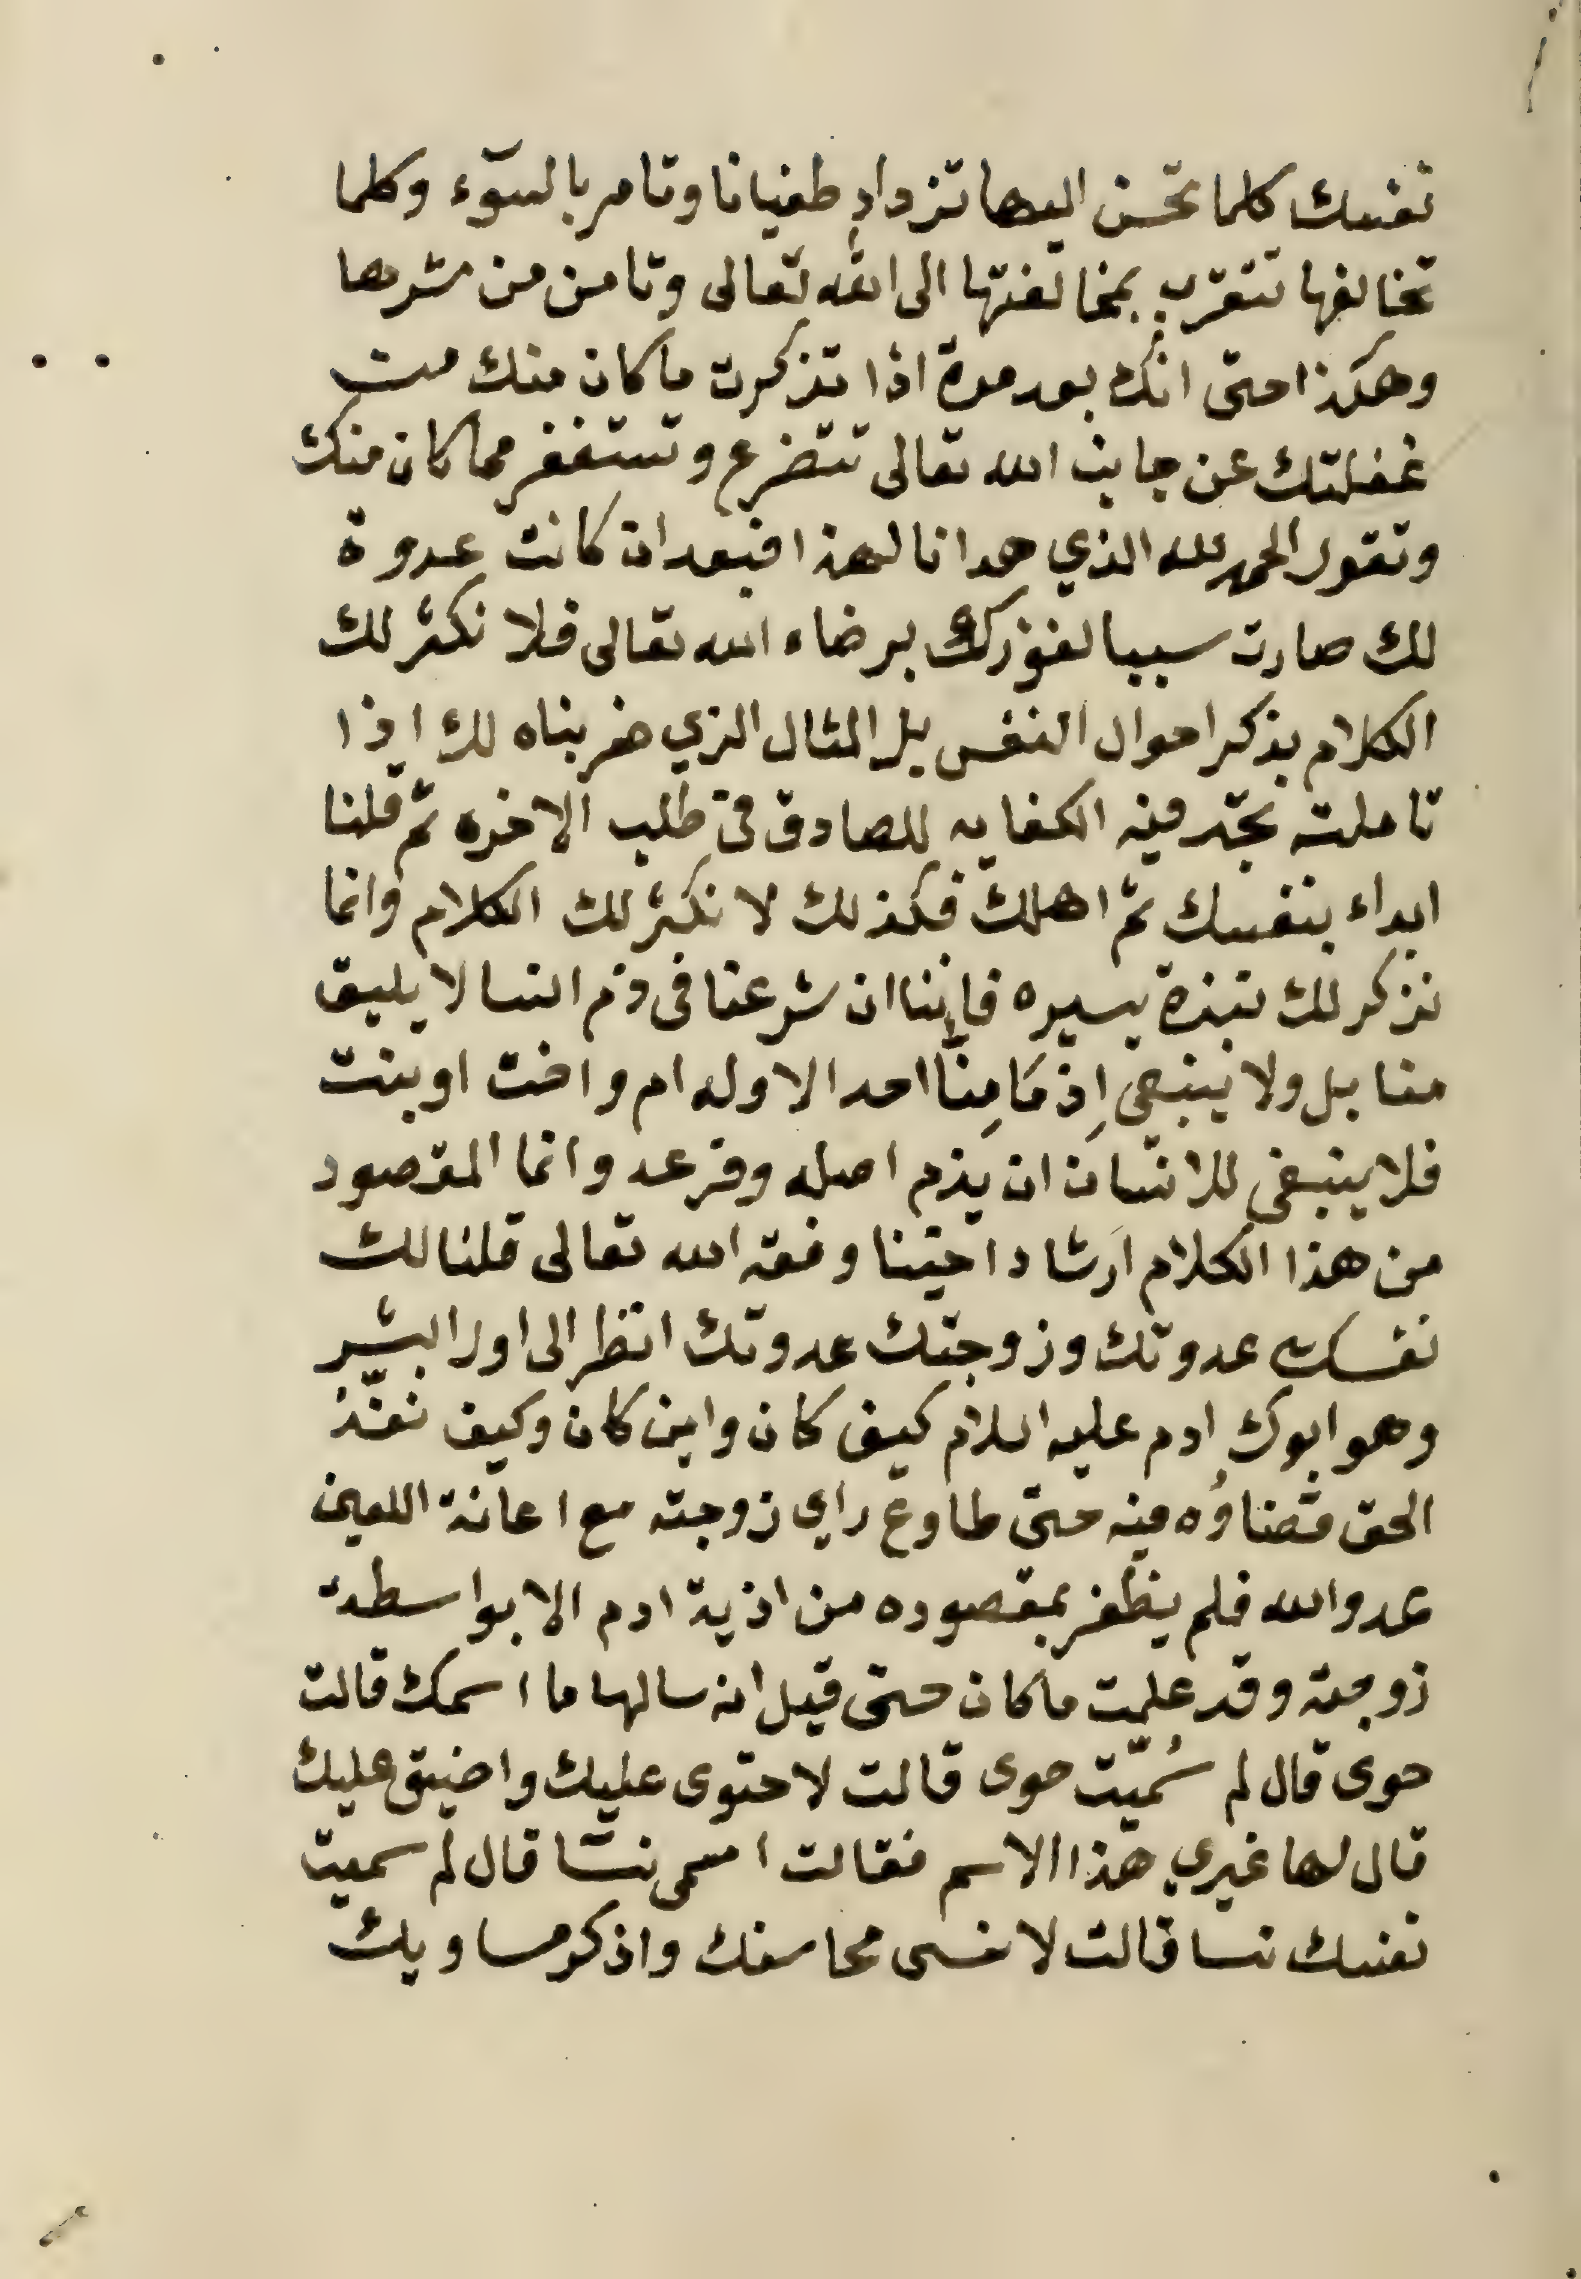 نفسك كلما تحسن اليها تزداد طغيانا وتامر بالسوٓء وكلما
تخالفها تتقرب بمخالفتها الى الله تعالى وتامن من شرها
وهكذا حتى انك بعد مدة اذا تذكرت ما كان منك من
غفلتك عن جانب الله تعالى تتضرع وتستغفر مما كان منك
وتقول الحمد لله الذي هدانا لهذا فبعد ان كانت عدوة
لك صارت سببا لفوزك برضاء الله تعالى فلا نكثر لك
الكلام بذكر احوال النفس بل المثال الذي ضربناه لك اذا
تاملته تجد فيه الكفايه للصادق في طلب الاخره ثم قلنا
ابداء بنفسك ثم اهلك فكذلك لا نكثر لك الكلام وانما
نذكر لك نبذة يسيره فإننا ان شرعنا في ذم النسا لا يليق
منا بل ولا ينبغي إذ مَا مِنّا احد الا وله ام واخت او بنت
فلا ينبغي للانسان ان يذم اصله وفرعه وانما المقصود
من هذا الكلام ارشاد اخينا وفقه الله تعالى قلنا لك
نفسك عدوتك وزوجتك عدوتك انظر الى اول البشر
وهو ابوك ادم عليه السلام كيف كان واين كان وكيف نفّذ
الحق قضاؤه فيه حتى طاوع راي زوجته مع اعانة اللعين
عدو الله فلم يظفر بمقصوده من اذية ادم الا بواسطة
زوجته وقد علمت ما كان حتى قيل انه سالها ما اسمك قالت
حوى قال لم سُميّت حوى قالت لاحتوى عليك واضيق عليك
قال لها غيري هذا الاسم فقالت اسمى نسا قال لم سميت
نفسك نسا قالت لانسى محاسنك واذكر مساويك